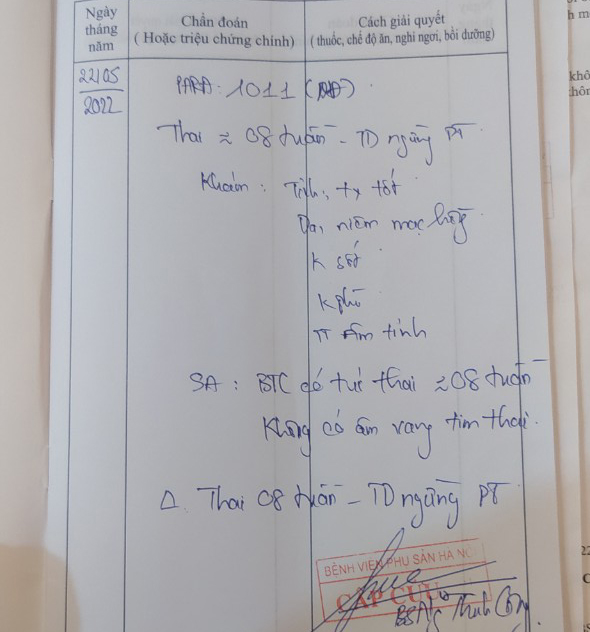 Ngày tháng năm
Chẩn đoán
( Hoặc triệu chứng chính)
Cách giải quyết
( thuốc, chế độ ăn, nghỉ ngơi, bồi dưỡng)
22/05
2022
PARA: 1011
Thai ≈ 08 tuần - TD ngừng PT
Khám: Tỉnh, tx tốt
Da, niêm mạc hồng
K sốt
K phù
TT Âm tính
SA: BTC có túi thai ≈ 08 tuần
Không có âm vang tim thai.
Δ. Thai 08 tuần - TD ngừng PT
BỆNH VIỆN PHỤ SẢN HÀ NỘI
CẤP CỨU